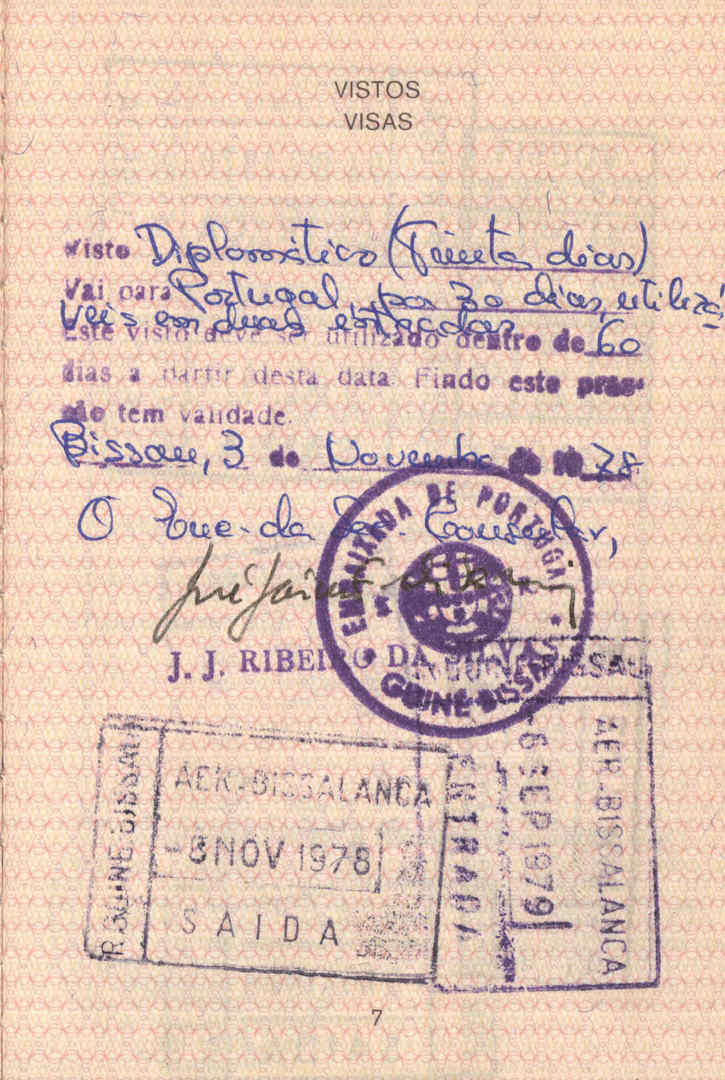 VISTOS
VISAS
Visto Diplomático (Trinta dias)
Vai para Portugal, por 30 dias, utilizá
veis em duas entradas
Este visto deve ser utilizado dentro de 60
dias a partir desta data. Findo este praso
não tem validade.
Bissau, 3 de Novembro de 19 78
O Enc. da Sec. Consular,
J. J. RIBEIRO DA SILVA
EMBAIXADA DE PORTUGAL
GUINÉ-BISSAU
R. GUINE-BISSAU
AER.-BISSALANCA
-8 NOV 1978
SAIDA
BISSAU
ENTRADA
-6 SEP 1979
AER.-BISSALANCA
7